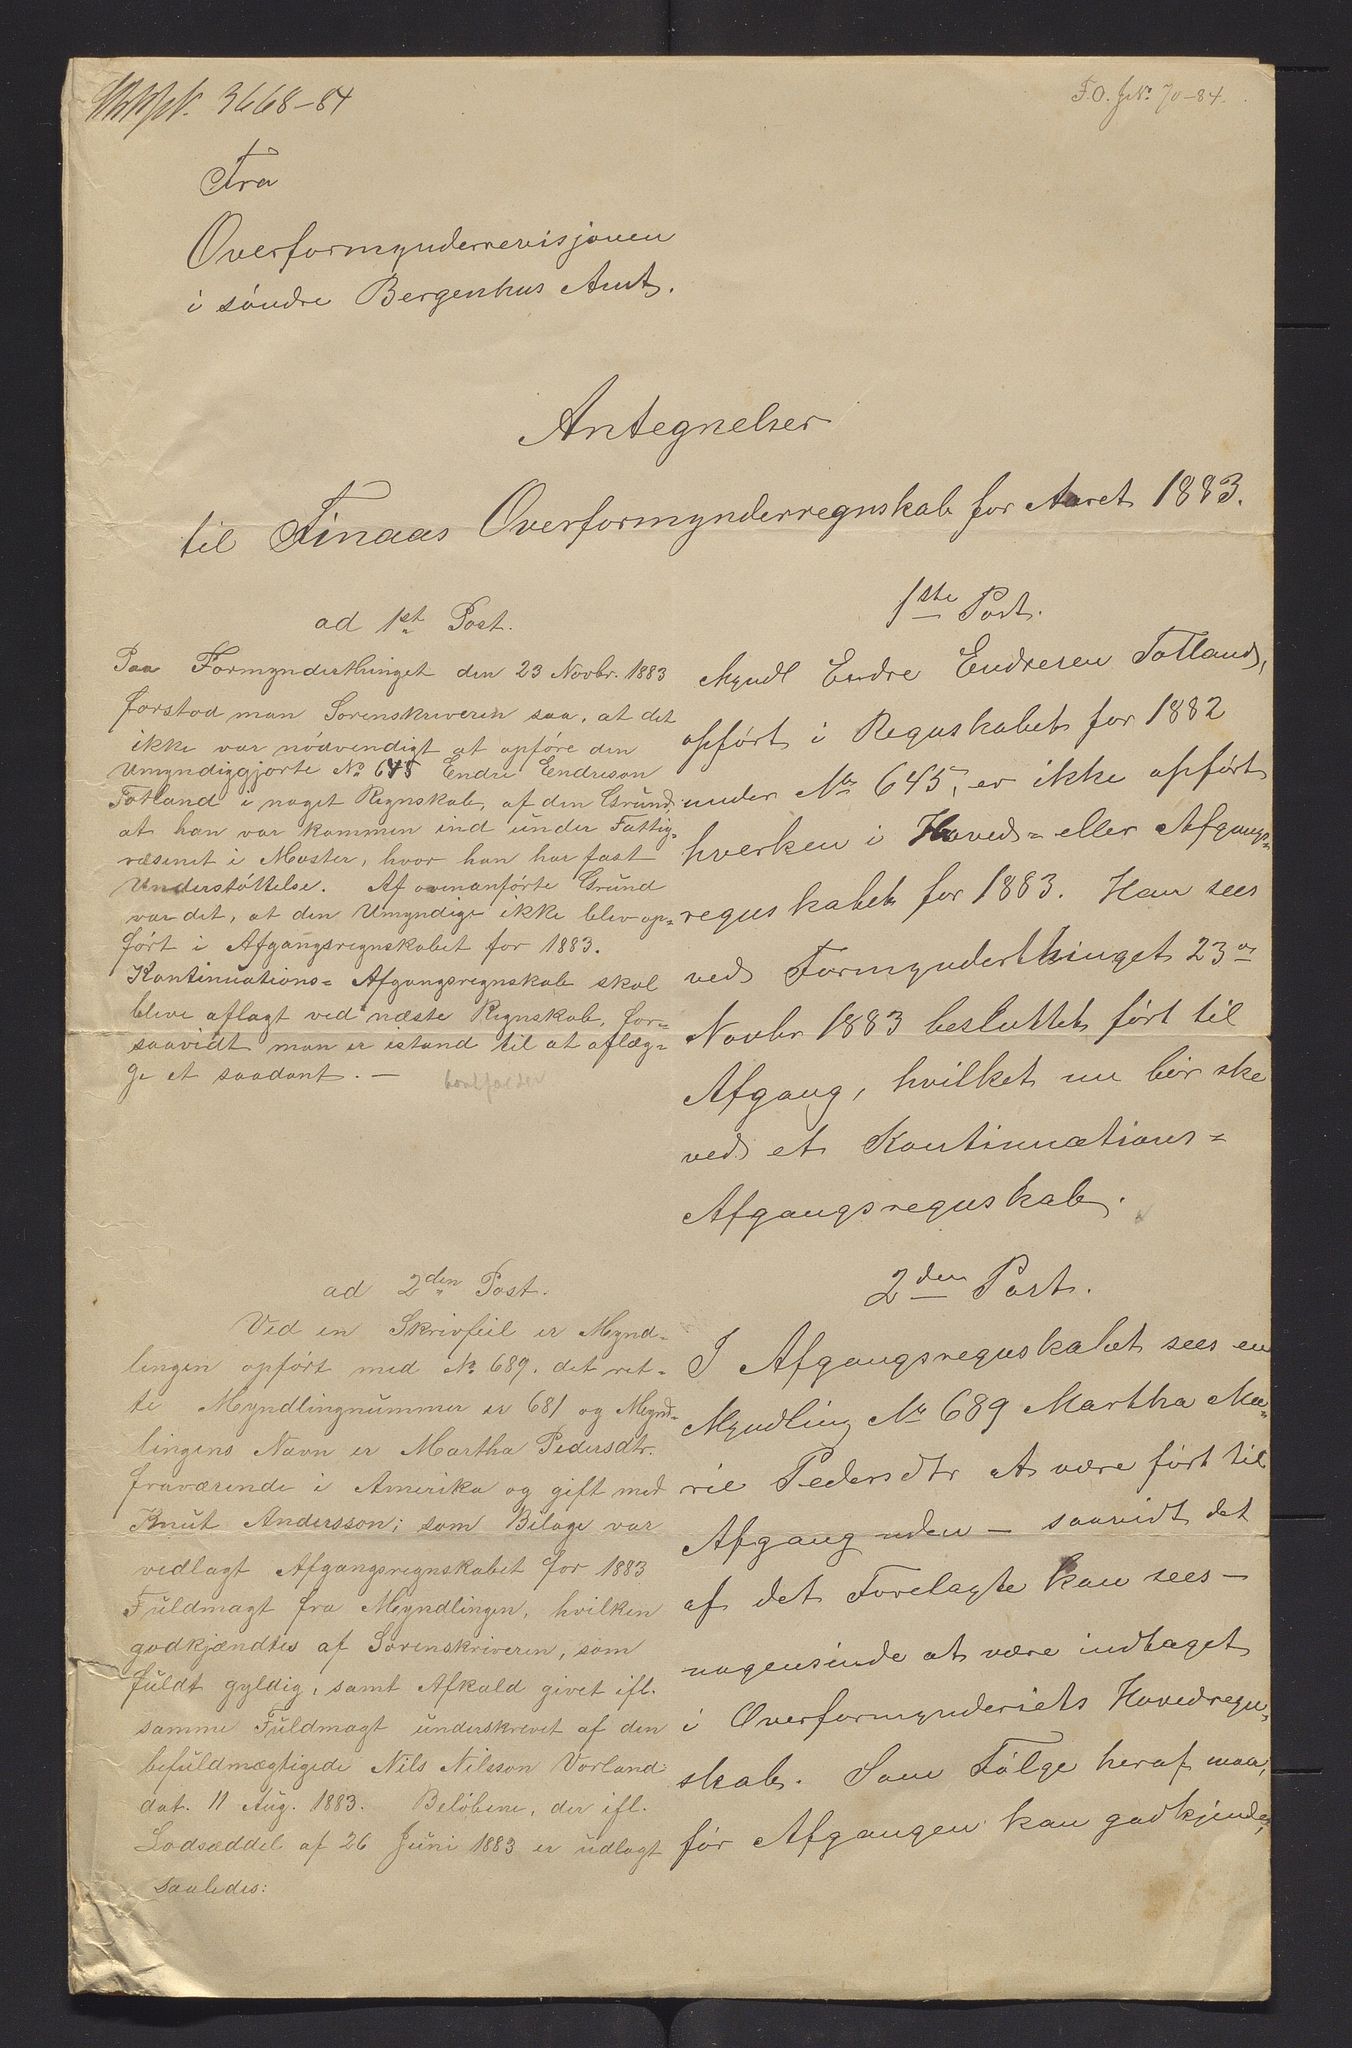 3668-84
F.O. JNo. 70-84.
Fra
Overformynderrevisjonen
i søndre Bergenhus Amt.
Antegnelser
til Finaas Overformynderregnskab for Aaret 1883.
ad 1st Post.
Paa Formynderthinget den 23 Novbr. 1883
forstod man Sorenskriveren saa, at det
ikke var nødvendigt at opføre den
Umyndiggjorte No 645 Endre Endreson
Totland i noget Regnskab, af den Grund,
at han var kommen ind under Fattig-
væsenet i Moster, hvor han har fast
Understøttelse. Af ovenanførte Grund
var det, at den Umyndige ikke blev op-
ført i Afgangsregnskabet for 1883.
Kontinuations- Afgangsregnskab skal
blive aflagt ved næste Regnskab, for-
saavidt man er istand til at aflæg-
ge et saadant. —
bortfalder
1ste Post.
Myndl Endre Endresen Totland,
opført i Regnskabet for 1882
under No 645, er ikke opført
hverken i Hoved- eller Afgangs-
regnskabet for 1883. Han sees
ved Formynderthinget 23de
Novbr 1883 besluttet ført til
Afgang, hvilket nu bør ske
ved et Kontinuations-
Afgangsregnskab.
ad 2den Post.
Ved en Skrivfeil er Mynd-
lingen opført med No 689, det ret-
te Myndlingnummer er 681 og Mynd-
lingens Navn er Martha Pedersdtr.
fraværende i Amerika og gift med
Knut Andersson; som Bilage var
vedlagt Afgangsregnskabet for 1883
Fuldmagt fra Myndlingen, hvilken
godkjændtes af Sorenskriveren, som
fuldt gyldig, samt Afkald givet ifl.
samme Fuldmagt underskrevet af den
befuldmægtigede Nils Nilsson Vorland
dat. 11 Aug. 1883. Beløbene, der ifl.
Lodsæddel af 26 Juni 1883 er udlagt
saaledes:
2den Post.
I Afgangsregnskabet sees en
Myndling No 689 Martha Ma-
rie Pedersdtr at være ført til
Afgang uden — saavidt det
af det Forelagte kan sees —
nogensinde at være indtaget
i Overformynderiets Hovedregn-
skab. Som Følge heraf maa,
før Afgangen kan godkjendes,